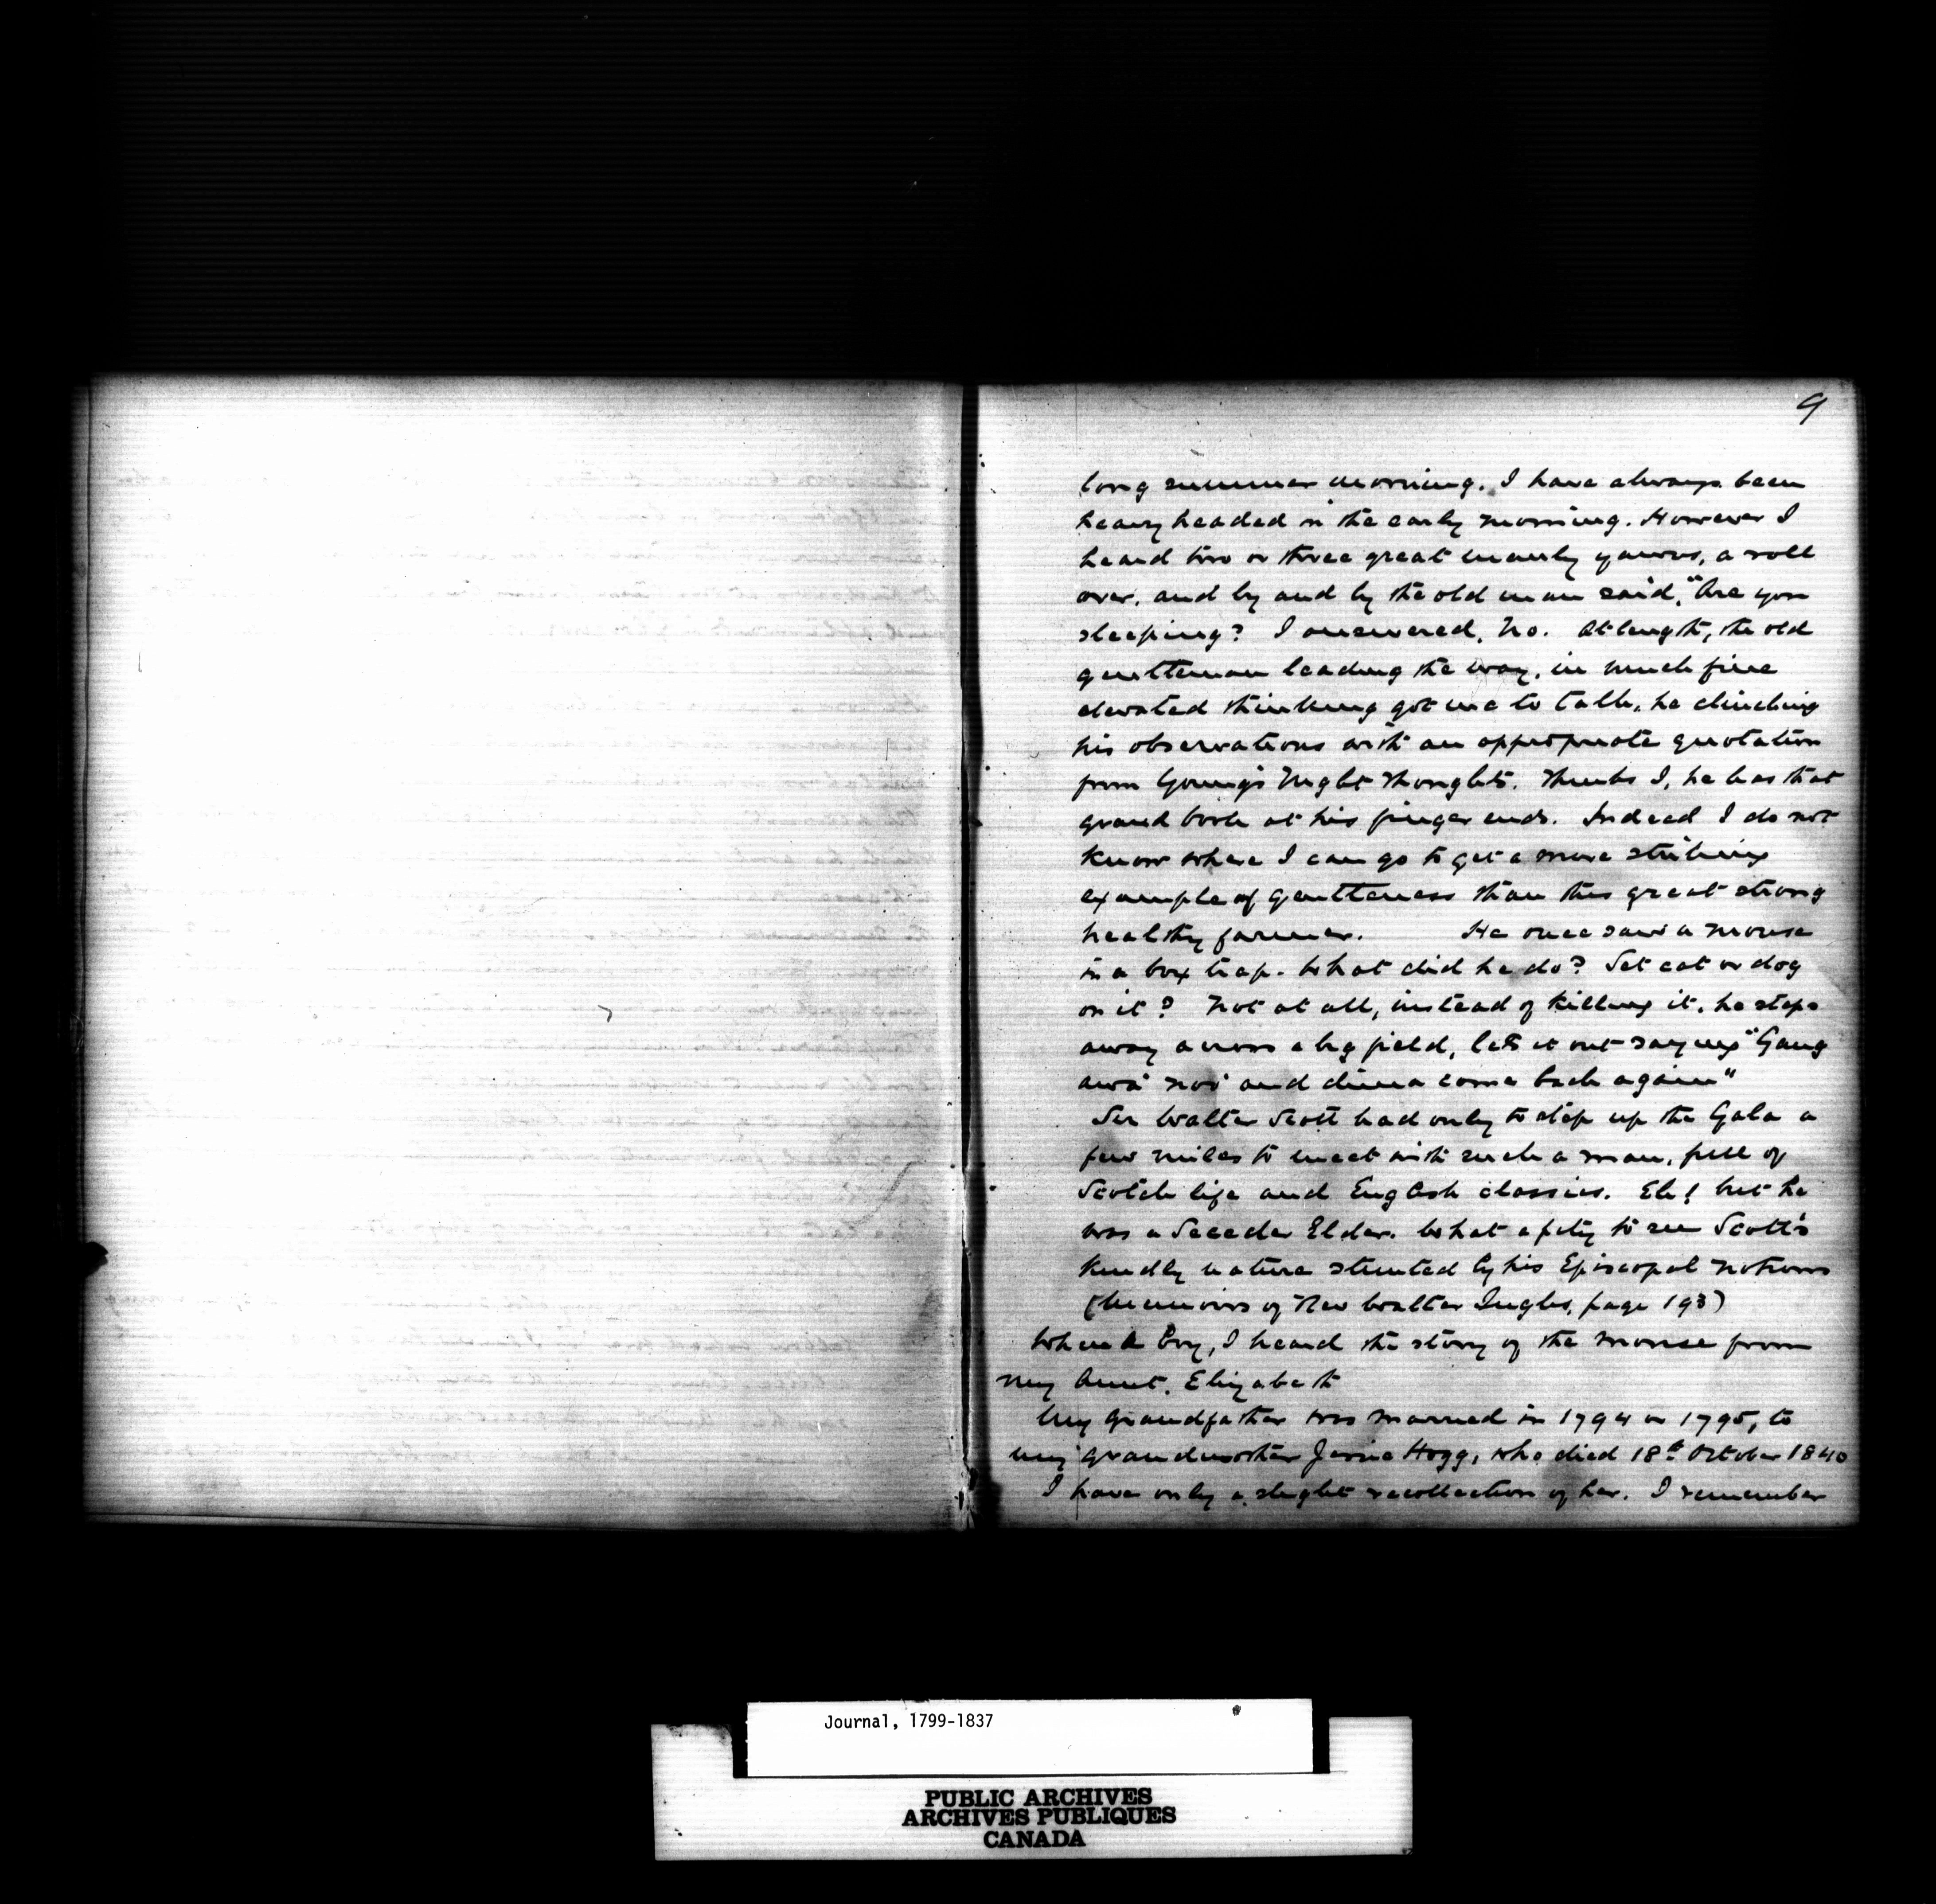 9
long summer morning. I have always been
heavy headed in the early morning. However I
heard two or three great manly yawns, a roll
over, and by and by the old man said, "Are you
sleeping? I answered, No. At length, the old
gentleman leading the way, in much fine
elevated thinking got me to talk, he clinching
his observations with an appropriate quotation
from Young's Night Thoughts. Thinks I, he has that
grand book at his finger ends. Indeed I do not
know where I can go to get a more striking
example of gentleness than this great strong
healthy farmer. He once saw a mouse
in a box trap. What did he do? Set cat or dog
on it? Not at all, instead of killing it, he steps
away across a big field, lets it out saying "Gang
awa' noo' and dinna come back again"
Sir Walter Scott had only to step up the Gala a
few miles to meet with such a man, full of
Scotch life and English classics. Eh! but he
was a Seceder Elder. What a pity to see Scott's
kindly nature stunted by his Episcopal notions
(Memoirs of Rev Walter Inglis, page 193)
When a boy, I heard the story of the mouse from
my Aunt, Elizabeth
My Grandfather was married in 1794 or 1795, to
my grandmother Janie Hogg, who died 18th October 1840
I have only a slight recollection of her. I remember
Journal, 1799-1837
PUBLIC ARCHIVES
ARCHIVES PUBLIQUES
CANADA